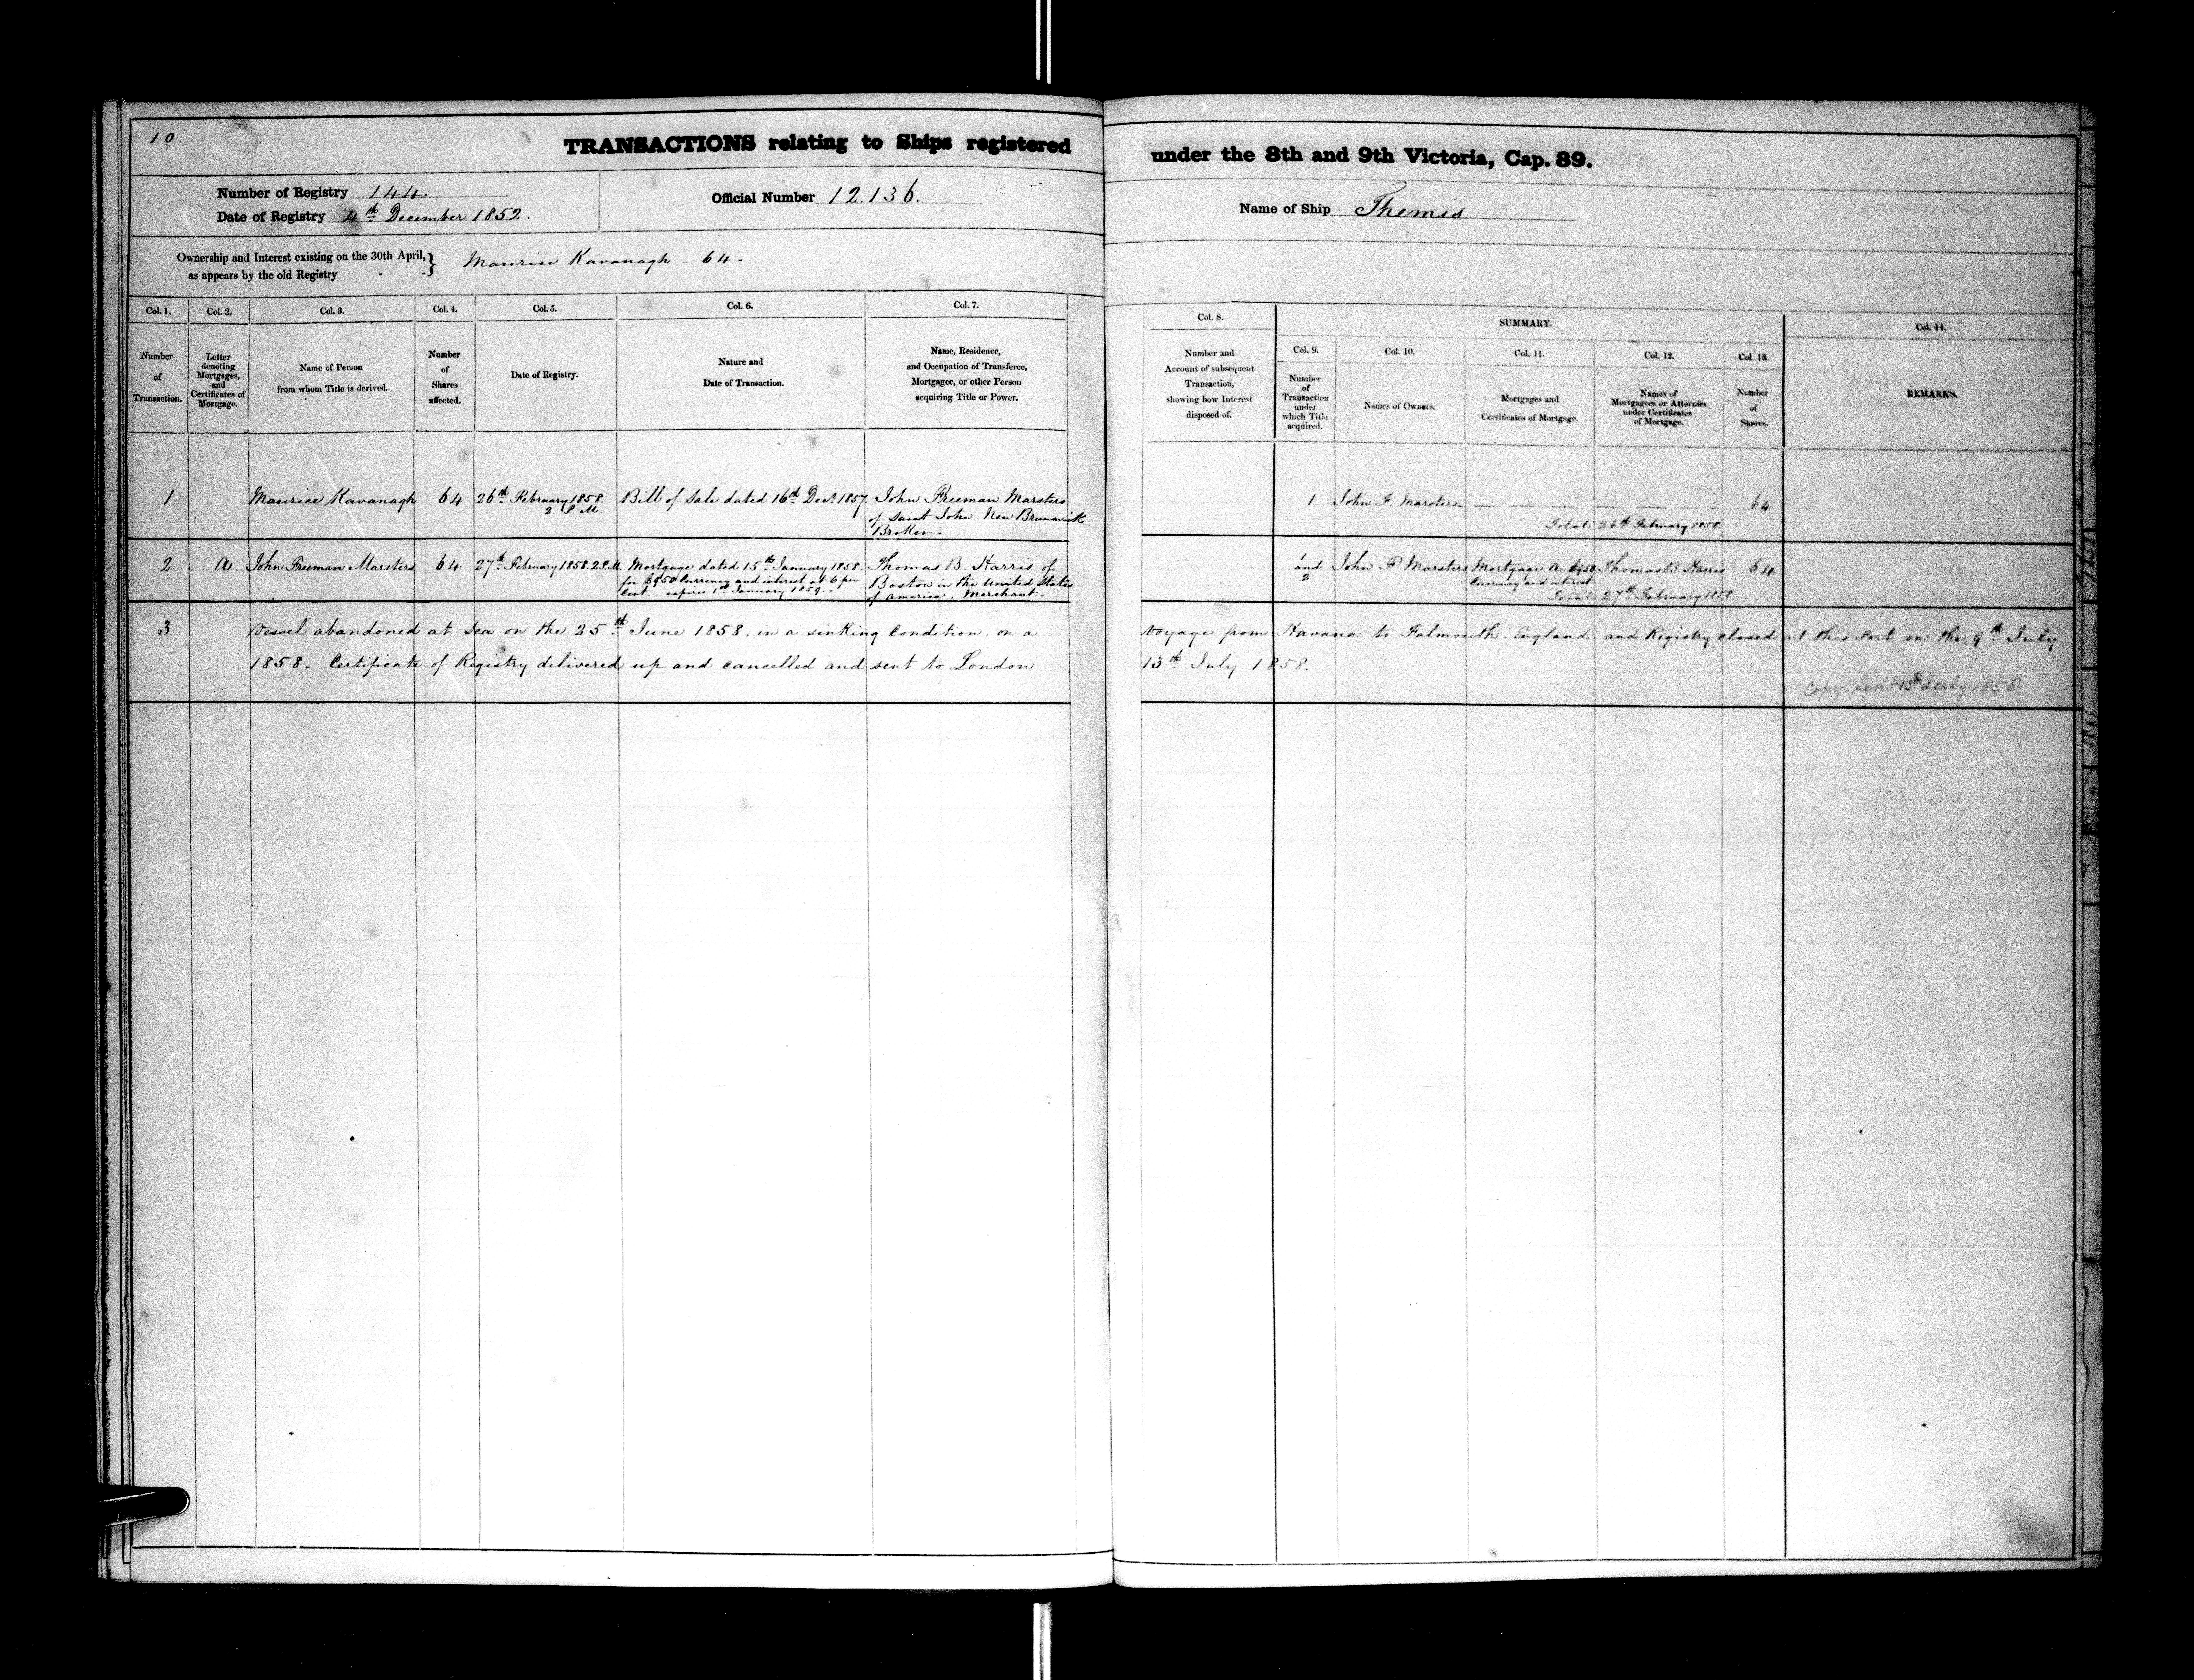 10.
TRANSACTIONS relating to Ships registered under the 8th and 9th Victoria, Cap. 89.
Number of Registry 144.
Date of Registry 4th December 1852.
Official Number 12.136.
Name of Ship Themis
Ownership and Interest existing on the 30th April, } Maurice Kavanagh - 64 -
as appears by the old Registry
Col. 1. Col. 2. Col. 3. Col. 4. Col. 5. Col. 6. Col. 7.
Number
of
Transaction.
Letter
denoting
Mortgages,
and
Certificates of
Mortgage.
Name of Person
from whom Title is derived.
Number
of
Shares
affected.
Date of Registry.
Nature and
Date of Transaction.
Name, Residence,
and Occupation of Transferee,
Mortgagee, or other Person
acquiring Title or Power.
Col. 8.
Number and
Account of subsequent
Transaction,
showing how Interest
disposed of.
SUMMARY.
Col. 9. Col. 10. Col. 11. Col. 12. Col. 13.
Number
of
Transaction
under
which Title
acquired.
Names of Owners.
Mortgages and
Certificates of Mortgage.
Names of
Mortgagees or Attornies
under Certificates
of Mortgage.
Number
of
Shares.
Col. 14.
REMARKS.
1
Maurice Kavanagh
64
26th February 1858.
2. P.M.
Bill of Sale dated 16th Decr. 1857.
John Freeman Marsters
of Saint John New Brunswick
Broker.
1
John F. Marsters
64
Total 26th February 1858.
2
A.
John Freeman Marsters
64
27th February 1858. 2 P.M.
Mortgage dated 15th January 1858.
for Currency and interest at 6 per
Cent. expires 1st January 1859.
Thomas B. Harris of
Boston in the United States
of America. Merchant.
1
and
2
John F Marsters
Mortgage A.
Currency and interest
Thomas B. Harris
64
Total 27th February 1858.
3
Vessel abandoned at Sea on the 25th June 1858. in a sinking Condition. on a voyage from Havana to Falmouth. England. and Registry closed at this Port on the 9th July
1858. Certificate of Registry delivered up and cancelled and sent to London 13th July 1858.
Copy Sent 13th July 1858